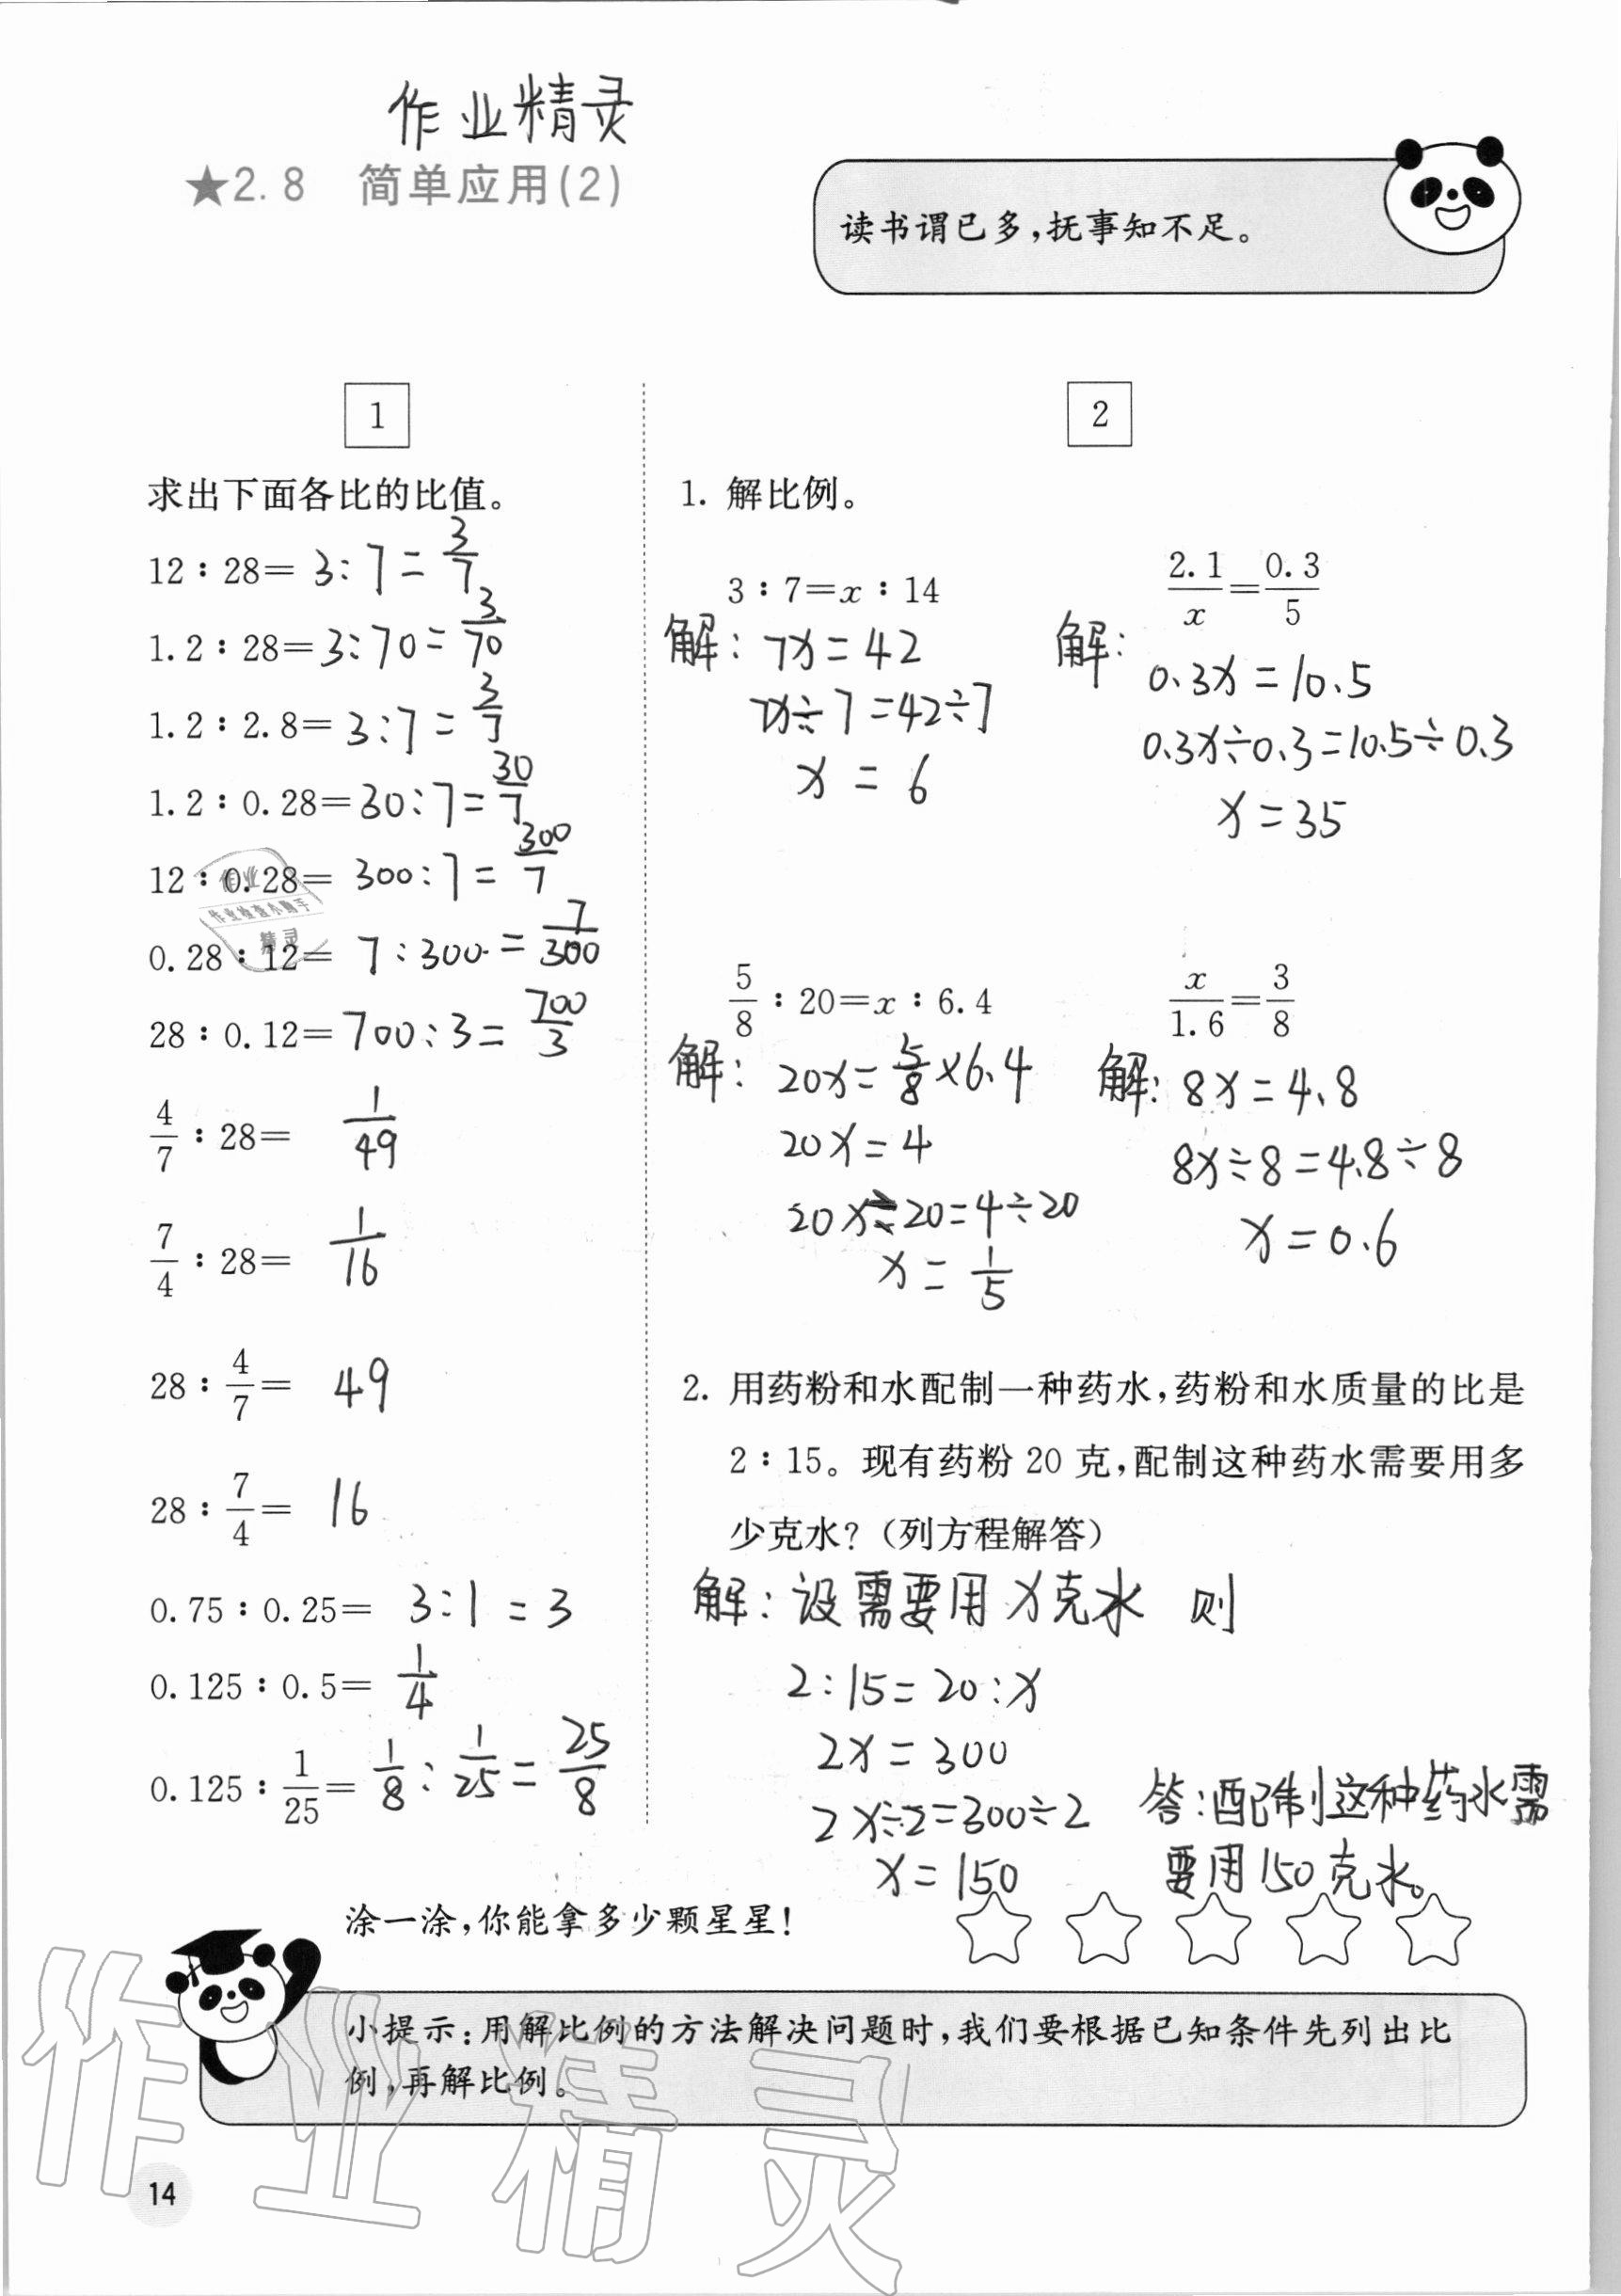 作业精灵
★2.8 简单应用(2)
读书谓已多,抚事知不足。
1
求出下面各比的比值。
12∶28= 3:7=3/7
1.2∶28=3:70=3/70
1.2∶2.8=3:7=3/7
1.2∶0.28=30:7=30/7
12∶0.28=300:7=300/7
0.28∶12=7:300=7/300
28∶0.12=700:3=700/3
4/7∶28= 1/49
7/4∶28= 1/16
28∶4/7= 49
28∶7/4= 16
0.75∶0.25= 3:1=3
0.125∶0.5= 1/4
0.125∶1/25= 1/8:1/25=25/8
作业
作业检查小助手
精灵
2
1. 解比例。
3∶7=x∶14
解: 7x=42
7x÷7=42÷7
x=6
2.1/x=0.3/5
解:
0.3x=10.5
0.3x÷0.3=10.5÷0.3
x=35
5/8∶20=x∶6.4
解: 20x=5/8×6.4
20x=4
20x÷20=4÷20
x=1/5
x/1.6=3/8
解: 8x=4.8
8x÷8=4.8÷8
x=0.6
2. 用药粉和水配制一种药水,药粉和水质量的比是
2∶15。现有药粉 20 克,配制这种药水需要用多
少克水?(列方程解答)
解: 设需要用x克水 则
2:15=20:x
2x=300
2x÷2=300÷2
x=150
答:配制这种药水需
要用150克水。
涂一涂,你能拿多少颗星星!
小提示:用解比例的方法解决问题时,我们要根据已知条件先列出比
例,再解比例。
作业精灵
14